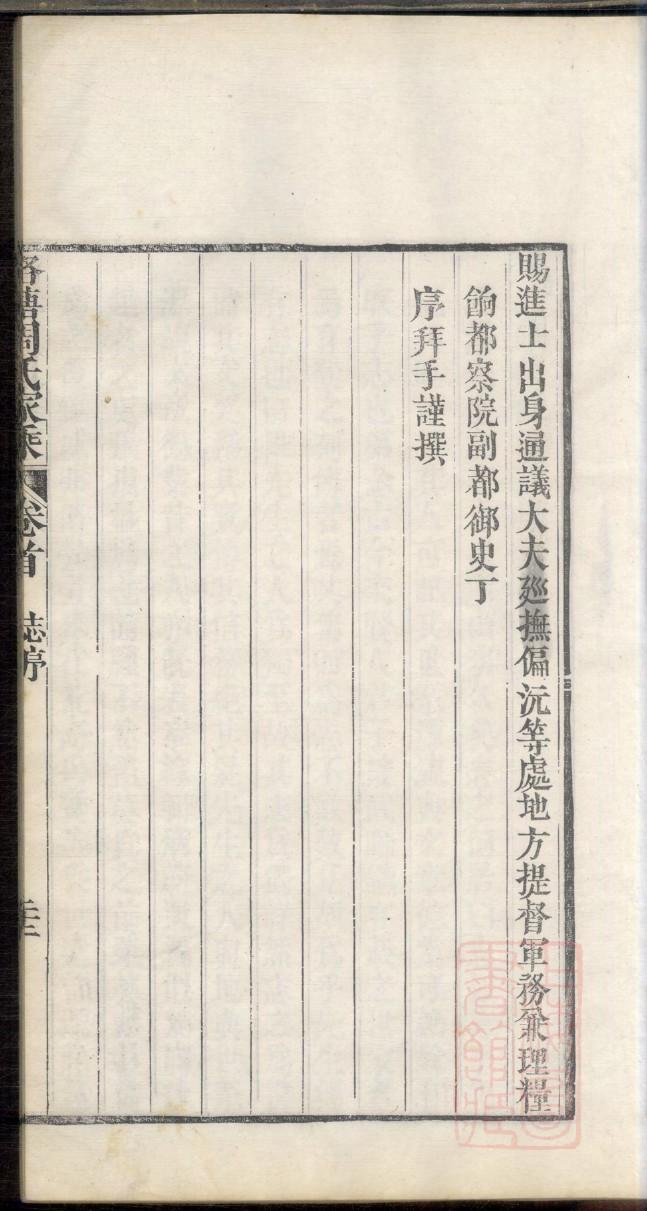 賜進士出身通議大夫廵撫偏沅等處地方提督軍務兼理糧
餉都察院副都御史丁
序拜手謹撰
周氏家乘
卷首
誌序